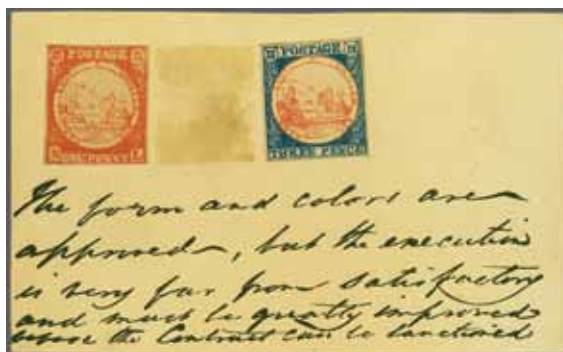 POSTAGE
ONE PENNY
POSTAGE
THREE PENCE
The form and colors are
approved, but the execution
is very far from satisfactory
and must be greatly improved
before the Contract can be sanctioned